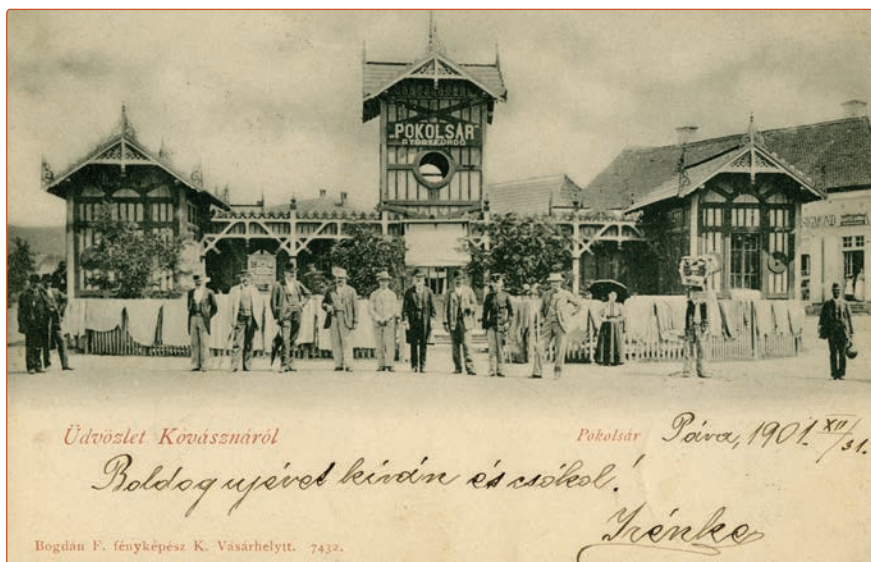 „POKOLSÁR”
GYÓGYFÜRDŐ
Üdvözlet Kóvásznáról
Pokolsár
Páva, 1901. XII/31.
Boldog ujévet kiván és csókol!
Irénke
Bogdán F. fényképész K. Vásárhelytt. 7432.